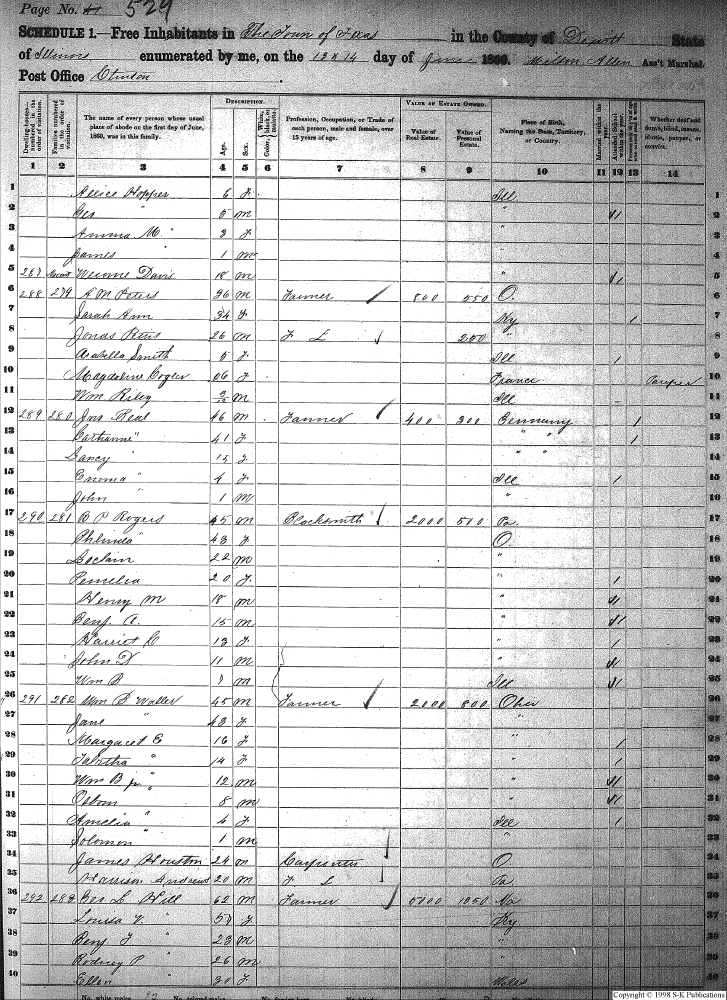 Page No. 529
SCHEDULE 1.—Free Inhabitants in The Town of Texas in the County of Dewitt State
of Illinois enumerated by me, on the 12 & 14 day of June 1860. Wilson Allen Ass't Marshal.
Post Office Clinton
DESCRIPTION.
VALUE OF ESTATE OWNED.
Dwelling-houses—numbered in the order of visitation.
Families numbered in the order of visitation.
The name of every person whose usual place of abode on the first day of June, 1860, was in this family.
Age.
Sex.
Color, White, black, or mulatto.
Profession, Occupation, or Trade of each person, male and female, over 15 years of age.
Value of Real Estate.
Value of Personal Estate.
Place of Birth, Naming the State, Territory, or Country.
Married within the year.
Attended School within the year.
Whether deaf and dumb, blind, insane, idiotic, pauper, or convict.
1 2 3 4 5 6 7 8 9 10 11 12 13 14
1 Allice Hopper 6 F Ill 1
2 Geo " 5 M " / 2
3 Emma M " 3 F " 3
4 James 1 M " 4
5 287 Davis 18 M " / 5
6 288 279 A M Peters 36 M Farmer 800 550 O. 6
7 Sarah Ann 34 F Ky / 7
8 Jonas 26 M F L 200 " 8
9 Arabella Smith 5 F Ill / 9
10 Magdaline 66 F France Pauper 10
11 Wm Riley M Ill 11
12 289 280 Jno Neal 46 M Farmer 400 300 Germany / 12
13 Catharine " 41 F " " / 13
14 Nancy " 15 F " " 14
15 Emma " 4 F Ill / 15
16 John " 1 M " 16
17 290 281 B P Rogers 45 M Blacksmith 2000 500 Pa. 17
18 Philinda " 43 F O. 18
19 22 M " 19
20 Pemelia 20 F " / 20
21 Henry M 18 M " / 21
22 Benj A. 15 M " / 22
23 Harriet C 13 F " / 23
24 John D 11 M " / 24
25 Wm B M Ill / 25
26 291 282 Wm B Waller 45 M Farmer 2000 800 Ohio 26
27 Jane " 43 F " 27
28 Margaret E 16 F " / 28
29 Tabitha " 14 F " / 29
30 Wm B jr " 12 M " / 30
31 Osborn 8 M " / 31
32 Amelia " 4 F Ill / 32
33 Solomon " 1 M " 33
34 James Houston 24 M Carpenter O. 34
35 Harrison Andrews 20 M F L Pa. 35
36 292 283 Geo L Hill 62 M Farmer 5000 1250 Va 36
37 Louisa V. " 57 F Ky 37
38 Benj F " 23 M " 38
39 Rodney P " 26 M " 39
40 Ellen " 30 F Wales 40
No. white males
Copyright © 1998 S-K Publications